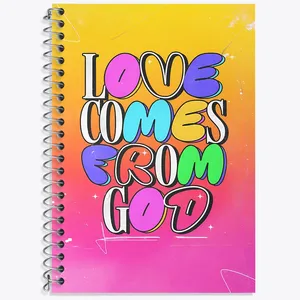 LOVE
COMES
FROM
GOD